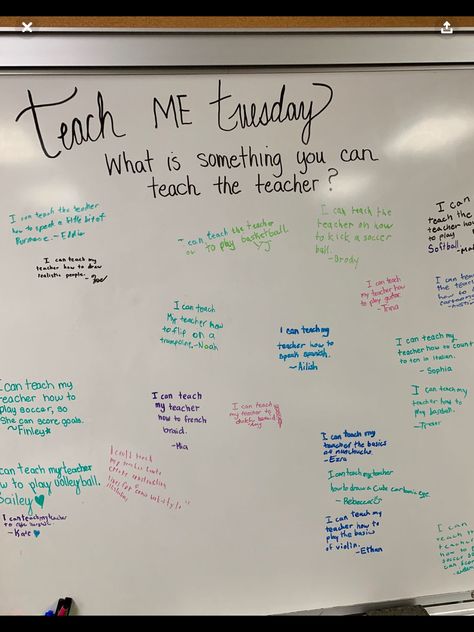 Teach ME Tuesday
What is something you can
teach the teacher?
I can teach the teacher
how to speak a little bit of
I can teach my
teacher how to draw
realistic people.
can teach the teacher
to play basketball.
I can teach the
teacher on how
to kick a soccer
ball.
-Brody
I can
teach the
teacher how
to play
Softball.
I can teach
my teacher how
to play guitar.
I can teach
My teacher how
to flip on a
trampoline. -Noah
I can teach my
teacher how to
speak spanish.
~Ailish
I can teach my
teacher how to count
to ten in italian.
-Sophia
I can teach my
teacher how to
play soccer, so
She can score goals.
~Finley*
I can teach
my teacher
how to french
braid.
-Mia
I can teach
my teacher to
I can teach my
teacher how to
play baseball.
-Trevor
can teach my teacher
how to play volleyball.
Bailey♥
I can teach my teacher
-Kate♥
I can teach
my teacher
I can teach my
teacher the basics
of
-Ezra
I can teach my teacher
how to draw a cute cartoon eye.
-Rebecca
I can teach my
teacher how to
play the basics
of violin.
-Ethan
I can
teach
teacher
how to
soccer